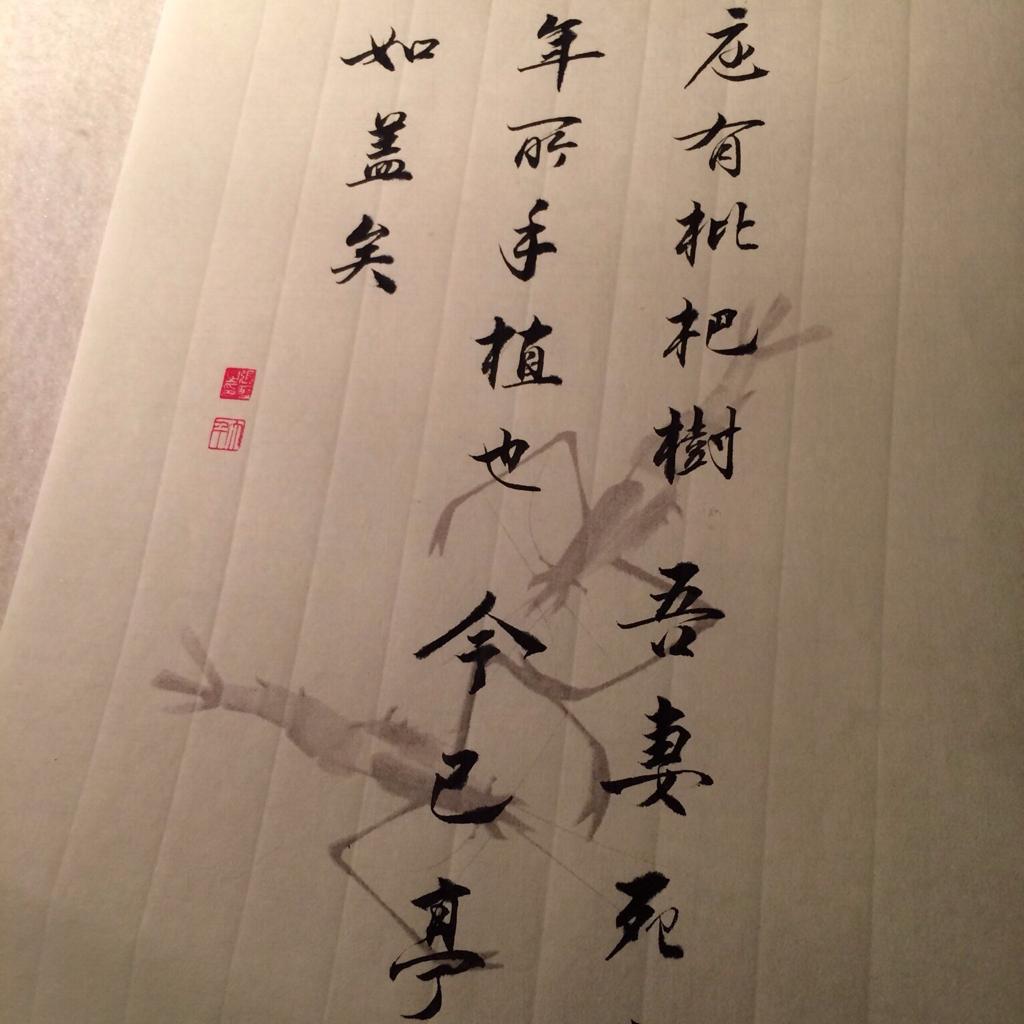 庭有枇杷樹吾妻死
年所手植也今已亭
如盖矣